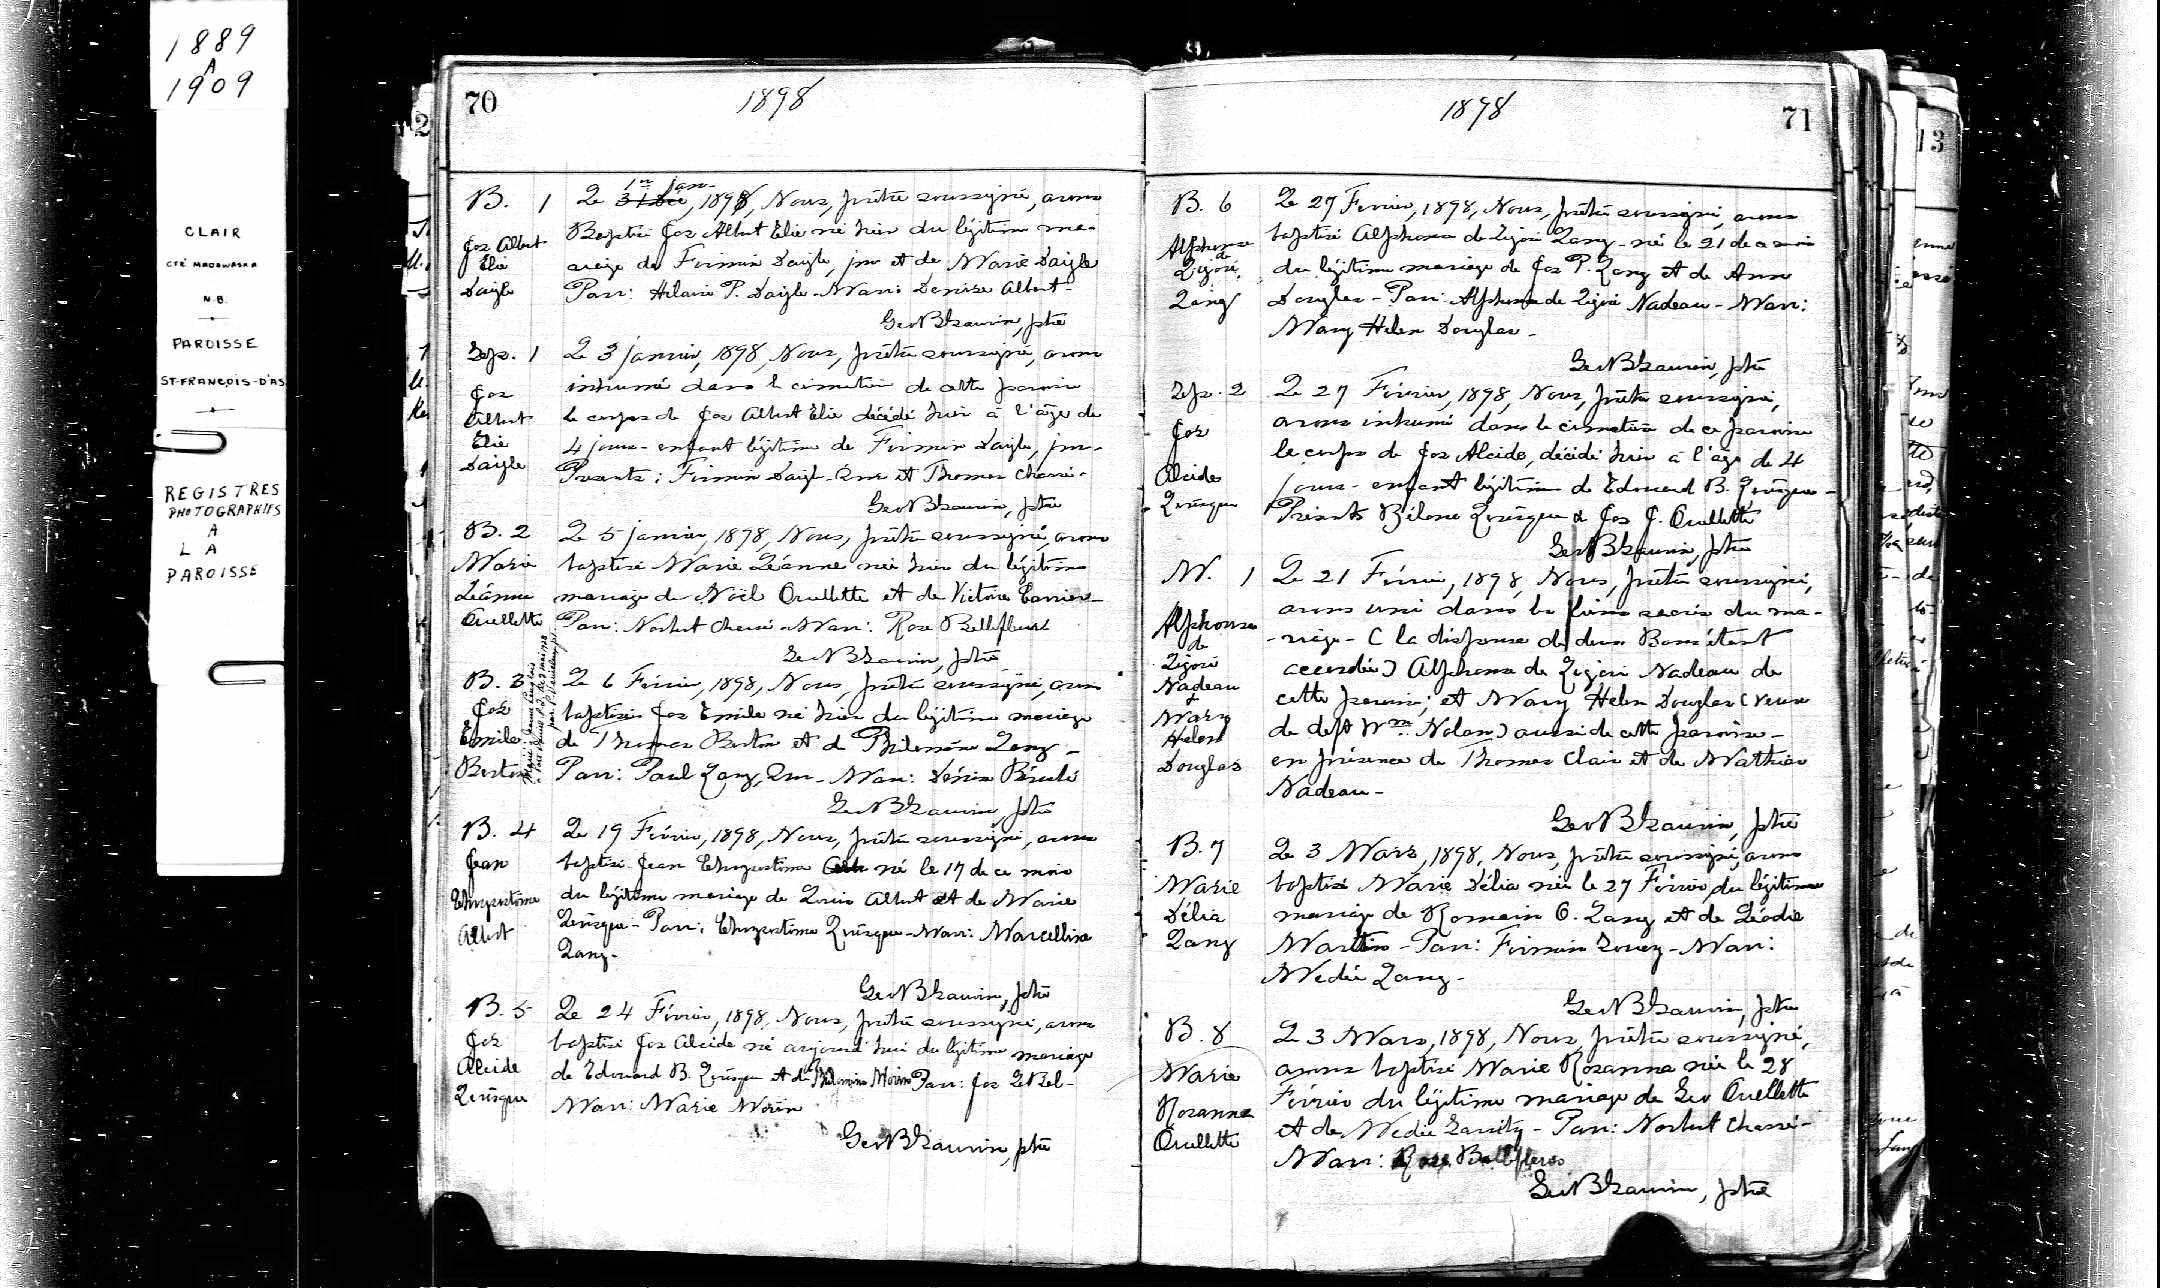 1889
A
1909
CLAIR
CTÉ MADAWASKA
N.B.
PAROISSE
ST-FRANÇOIS-D'AS
REGISTRES
PHOTOGRAPHIÉS
A
LA
PAROISSE
70
1898
B. 1
Jos Albert
Elie
Daigle
1er jan-
Le 31 Déc, 1898, Nous, prêtre soussigné, avons
Baptisé Jos Albert Elie né hier du légitime ma-
riage de Firmin Daigle, jnr et de Marie Daigle
Parr: Hilaire P. Daigle - Marr: Denise Albert -
Geo N B Gauvin, ptre
Sep. 1
Jos
Albert
Elie
Daigle
Le 3 janvier, 1898, Nous, prêtre soussigné, avons
inhumé dans le cimetière de cette paroisse
le corps de Jos Albert Elie décédé hier à l'âge de
4 jours - enfant légitime de Firmin Daigle, jnr -
Presents: Firmin Daigle Snr et Thomas Chassé -
Geo N B Gauvin, ptre
B. 2
Marie
Léanne
Ouellette
Le 5 janvier, 1898, Nous, prêtre soussigné, avons
baptisé Marie Léanne née hier du légitime
mariage de Noël Ouellette et de Victoire Carrier -
Parr: Norbert Chassé - Marr: Rose Bellefleur
Geo N B Gauvin, ptre
B. 3
Jos
Emile
Boston
Le 6 Février, 1898, Nous, prêtre soussigné, avons
baptisé Jos Emile né hier du légitime mariage
de Thomas Boston et de Philomène Lang -
Parr: Paul Lang, Snr - Marr: Bérubé
Geo N B Gauvin, ptre
B. 4
Jean
Chrysostôme
Albert
Le 19 Février, 1898, Nous, prêtre soussigné, avons
baptisé Jean Chrysostôme né le 17 de ce mois
du légitime mariage de Louis Albert et de Marie
Levesque - Parr: Chrysostôme Levesque - Marr: Marcelline
Lang -
Geo N B Gauvin, ptre
B. 5
Jos
Alcide
Levesque
Le 24 Février, 1898, Nous, prêtre soussigné, avons
baptisé Jos Alcide né aujourd'hui du légitime mariage
de Edouard B. Levesque et de Philomène Morin Parr: Jos LeBel -
Marr: Marie Morin
Geo N B Gauvin, ptre
1898
71
B. 6
Alphonse
de
Ligori
Lang
Le 27 Fevrier, 1898, Nous, prêtre soussigné, avons
baptisé Alphonse de Ligori Lang - né le 21 de ce mois
du légitime mariage de Jos P. Lang et de Ann
Douglas - Parr: Alphonse de Ligori Nadeau - Marr:
Mary Helen Douglas -
Geo N B Gauvin, ptre
Sep. 2
Jos
Alcide
Levesque
Le 27 Février, 1898, Nous, prêtre soussigné,
avons inhumé dans le cimetière de ce paroisse
le corps de Jos Alcide, décédé hier à l'âge de 4
jours - enfant légitime de Edouard B. Levesque -
Présents Levesque & Jos J. Ouellette
Geo N B Gauvin, ptre
M. 1
Alphonse
de
Ligori
Nadeau
+
Mary
Helen
Douglas
Le 21 Février, 1898, Nous, prêtre soussigné,
avons uni dans les liens sacrés du ma-
- riage - (la dispense de deux Bans étant
accordée) Alphonse de Ligori Nadeau de
cette paroisse; et Mary Helen Douglas (veuve
de deft Wm Nolan) aussi de cette paroisse -
en présence de Thomas Clair et de Mathias
Nadeau -
Geo N B Gauvin, ptre
B. 7
Marie
Délia
Lang
Le 3 Mars, 1898, Nous, prêtre soussigné, avons
baptisé Marie Délia née le 27 Février, du légitime
mariage de Romain O. Lang et de Léodie
Martin - Parr: Firmin Soucy - Marr:
Médée Lang -
Geo N B Gauvin, ptre
B. 8
Marie
Rosanna
Ouellette
Le 3 Mars, 1898, Nous, prêtre soussigné,
avons baptisé Marie Rosanna née le 28
Février du légitime mariage de Geo Ouellette
et de Médée - Parr: Norbert Chassé -
Marr: Rose Bellefleur
Geo N B Gauvin, ptre
13